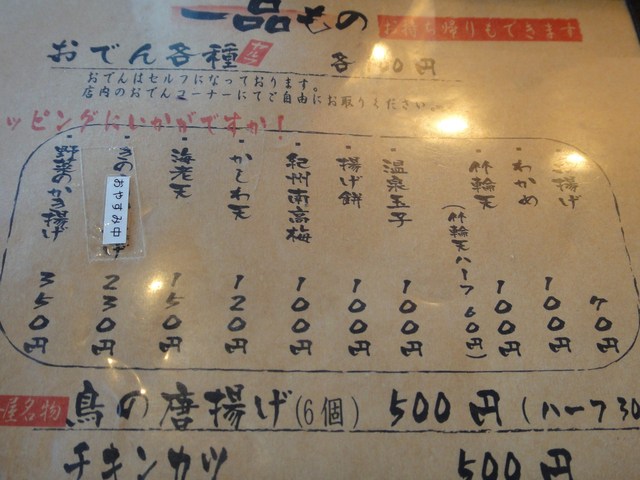 一品もの
お持ち帰りもできます
おでん各種
各100円
おでんはセルフになっております。
店内のおでんコーナーにてご自由にお取りください
ッピングにいかがですか!
揚げ 70円
・わかめ 100円
・竹輪天 100円
(竹輪天ハーフ 60円)
・温泉玉子 100円
・揚げ餅 100円
・紀州南高梅 100円
・かしわ天 120円
・海老天 150円
230円
おやすみ中
・野菜のかき揚げ 350円
屋名物
鳥の唐揚げ(6個) 500円(ハーフ30
チキンカツ 500円